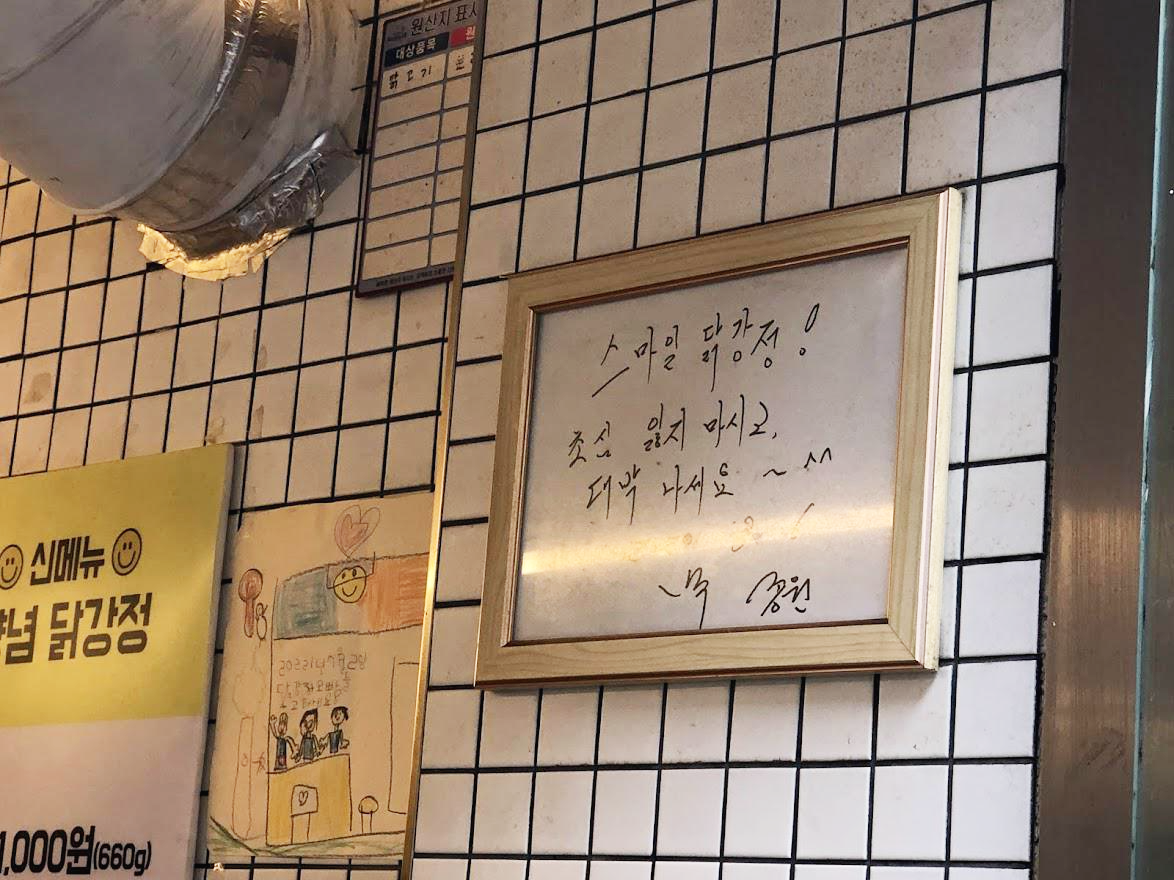 원산지 표시
대상품목
닭고기
스마일 닭강정!
초심 잃지 마시고,
대박 나세요 ~ ^^
종원
신메뉴
념 닭강정
1,000원(660g)
2022년 7월 2일